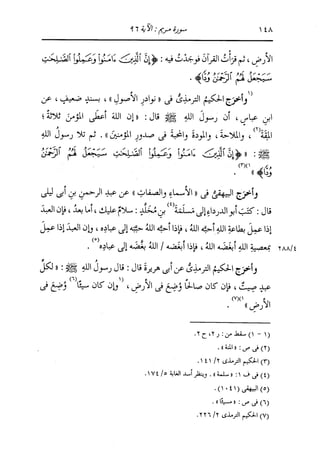 ١٤٨ سورة مريم : الآية ٩٦
الأرض، ثم قرأتُ القرآنَ فوجَدتُ فيه: ﴿إِنَّ الَّذِينَ ءَامَنُوا وَعَمِلُوا الصَّلِحَتِ
سَيَجْعَلُ لَهُمُ الرَّحْمَنُ وُدًّا﴾.
(١) وأخرَج الحكيمُ الترمذىُّ فى «نوادرِ الأصولِ»، بسندٍ ضعيفٍ، عن
ابنِ عباسٍ، أن رسولَ اللهِ ﷺ قال: «إن اللهَ أعطَى المؤمنَ ثلاثةً؛
المِقَةَ(٢)، والملاحةَ، والمودةَ والمحبةَ فى صدورِ المؤمنين». ثم تلا رسولُ اللهِ
ﷺ: «﴿إِنَّ الَّذِينَ ءَامَنُوا وَعَمِلُوا الصَّلِحَتِ سَيَجْعَلُ لَهُمُ الرَّحْمَنُ
وُدًّا﴾»(١)(٣).
وأخرَج البيهقىُّ فى «الأسماءِ والصفاتِ» عن عبدِ الرحمنِ بنِ أبى ليلى
قال: كتَب أبو الدرداءِ إلى مَسلمةَ(٤) بنِ مُخَلَّدٍ: سلامٌ عليك، أما بعدُ، فإن العبدَ
إذا عمِل بطاعةِ اللهِ أحبَّه اللهُ، فإذا أحبَّه اللهُ حبَّبه إلى عبادِه، وإن العبدَ إذا عمِل
٢٨٨/٤ بمعصيةِ اللهِ أبغَضه اللهُ، فإذا أبغَضه / اللهُ بغَّضه إلى عبادِه(٥).
وأخرَج الحكيمُ الترمذىُّ عن أبى هريرةَ قال: قال رسولُ اللهِ ﷺ: «لكلِّ
عبدٍ صِيتٌ، فإن كان صالحًا وُضِع فى الأرضِ، (٦) وإن كان سيِّئًا(٦) وُضِع فى
الأرضِ»(٧)(١).
(١ - ١) سقط من: ر ٢، ح ٢.
(٢) فى ص: «المئة».
(٣) الحكيم الترمذى ١٤١/٢.
(٤) فى ف ١: «سلمة». وينظر أسد الغابة ١٧٤/٥.
(٥) البيهقى (١٠٤١).
(٦) فى ص: «مسيئا».
(٧) الحكيم الترمذى ٢٢٦/٢.